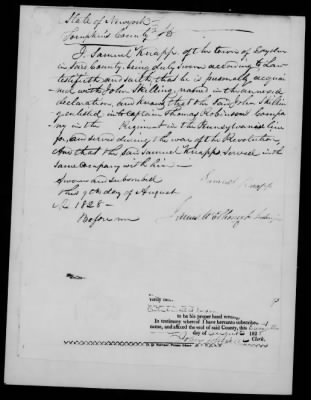 State of Newyork
Tompkins County SS
I Samuel Knapp of the town of
in said County, being duly sworn according to Law
testifieth and saith that he is personally acquai
nted with John Skilling, named in the annexed
declaration, and knows that the said John Skillin
g enlisted in to Captain Thomas Robinson's Compa
ny in the Regiment in the Pennsylvania line
for, and served during the war of the Revolution,
And that the said Samuel Knapp served in the
same company with him
Sworn and subscribed
this 9th day of August
AD 1828 -
Before me
Samuel Knapp
verify
to be his proper hand
In testimony whereof I have hereunto subscribed
name, and affixed the seal of said County, this
day of August 182
Clerk.